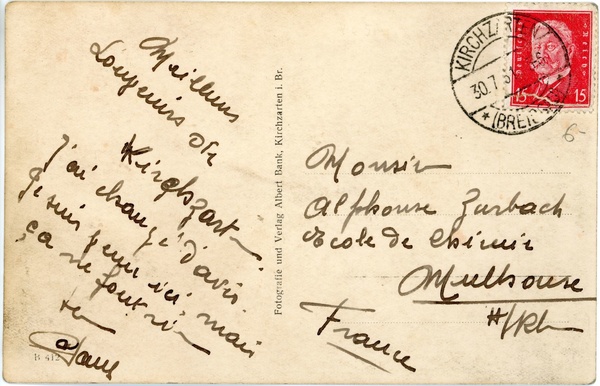 Meilleurs
Souvenirs de
Kirchzarten
j'ai changé d'avis
Je suis venu ici, mais
ça ne fait rien
B 412
Fotografie und Verlag Albert Bank, Kirchzarten i. Br.
KIRCHZARTEN
30.7.31
(BREISGAU)
Deutsches Reich
15 15
6-
Monsieur
Alphonse Zurbach
Ecole de Chimie
Mulhouse
H/Rh
France